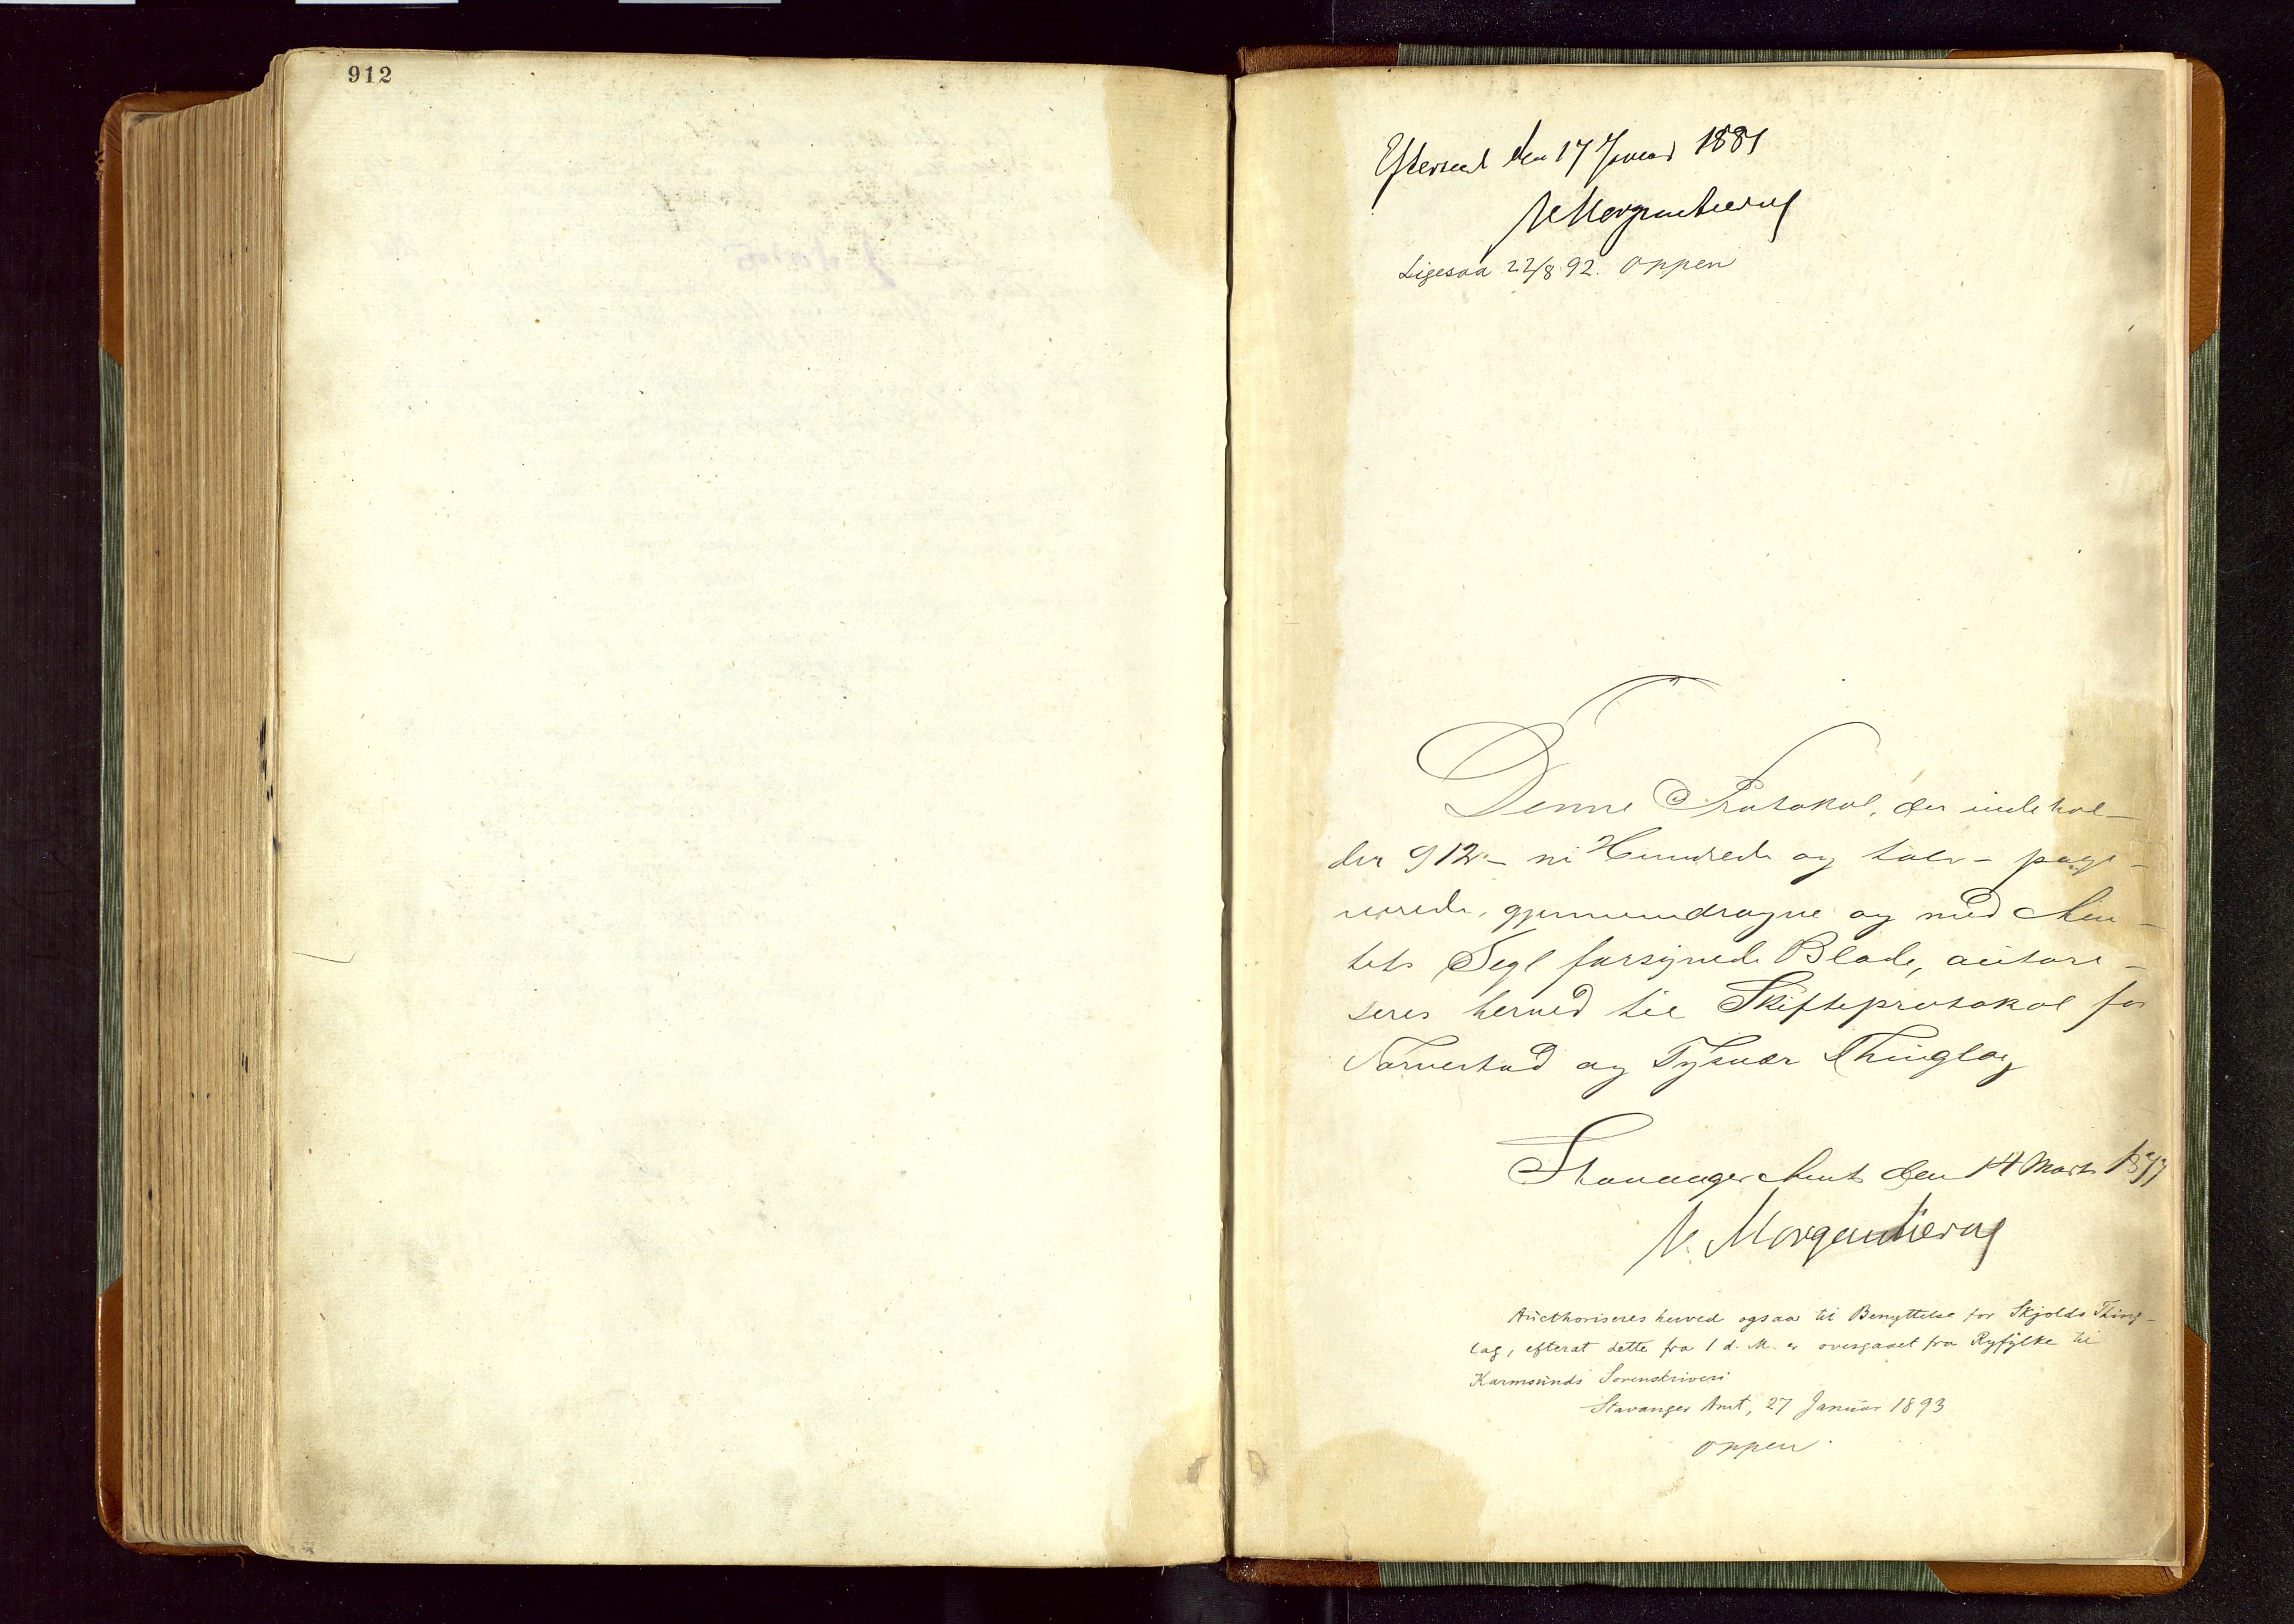 912
Efterseet den 17 Januar 1881
V. Morgenstierne
Ligesaa 22/8 92. Oppen
Denne Protokol, der indehol-
der 912 - ni Hundrede og tolv - pagi-
nerede, gjennemdragne og med Am-
tets Segl forsynede Blade, autori-
seres herved til Skifteprotokol for
Torvestad og Tysvær Thinglag
Stavanger Amt den 14 Marts 1877
V. Morgenstierne
Aucthoriseres herved ogsaa til Benyttelse for Skjolds Thing-
lag, efterat dette fra 1 d. M. er overgaaet fra Ryfylke til
Karmsunds Sorenskriveri
Stavanger Amt, 27 Januar 1893
Oppen